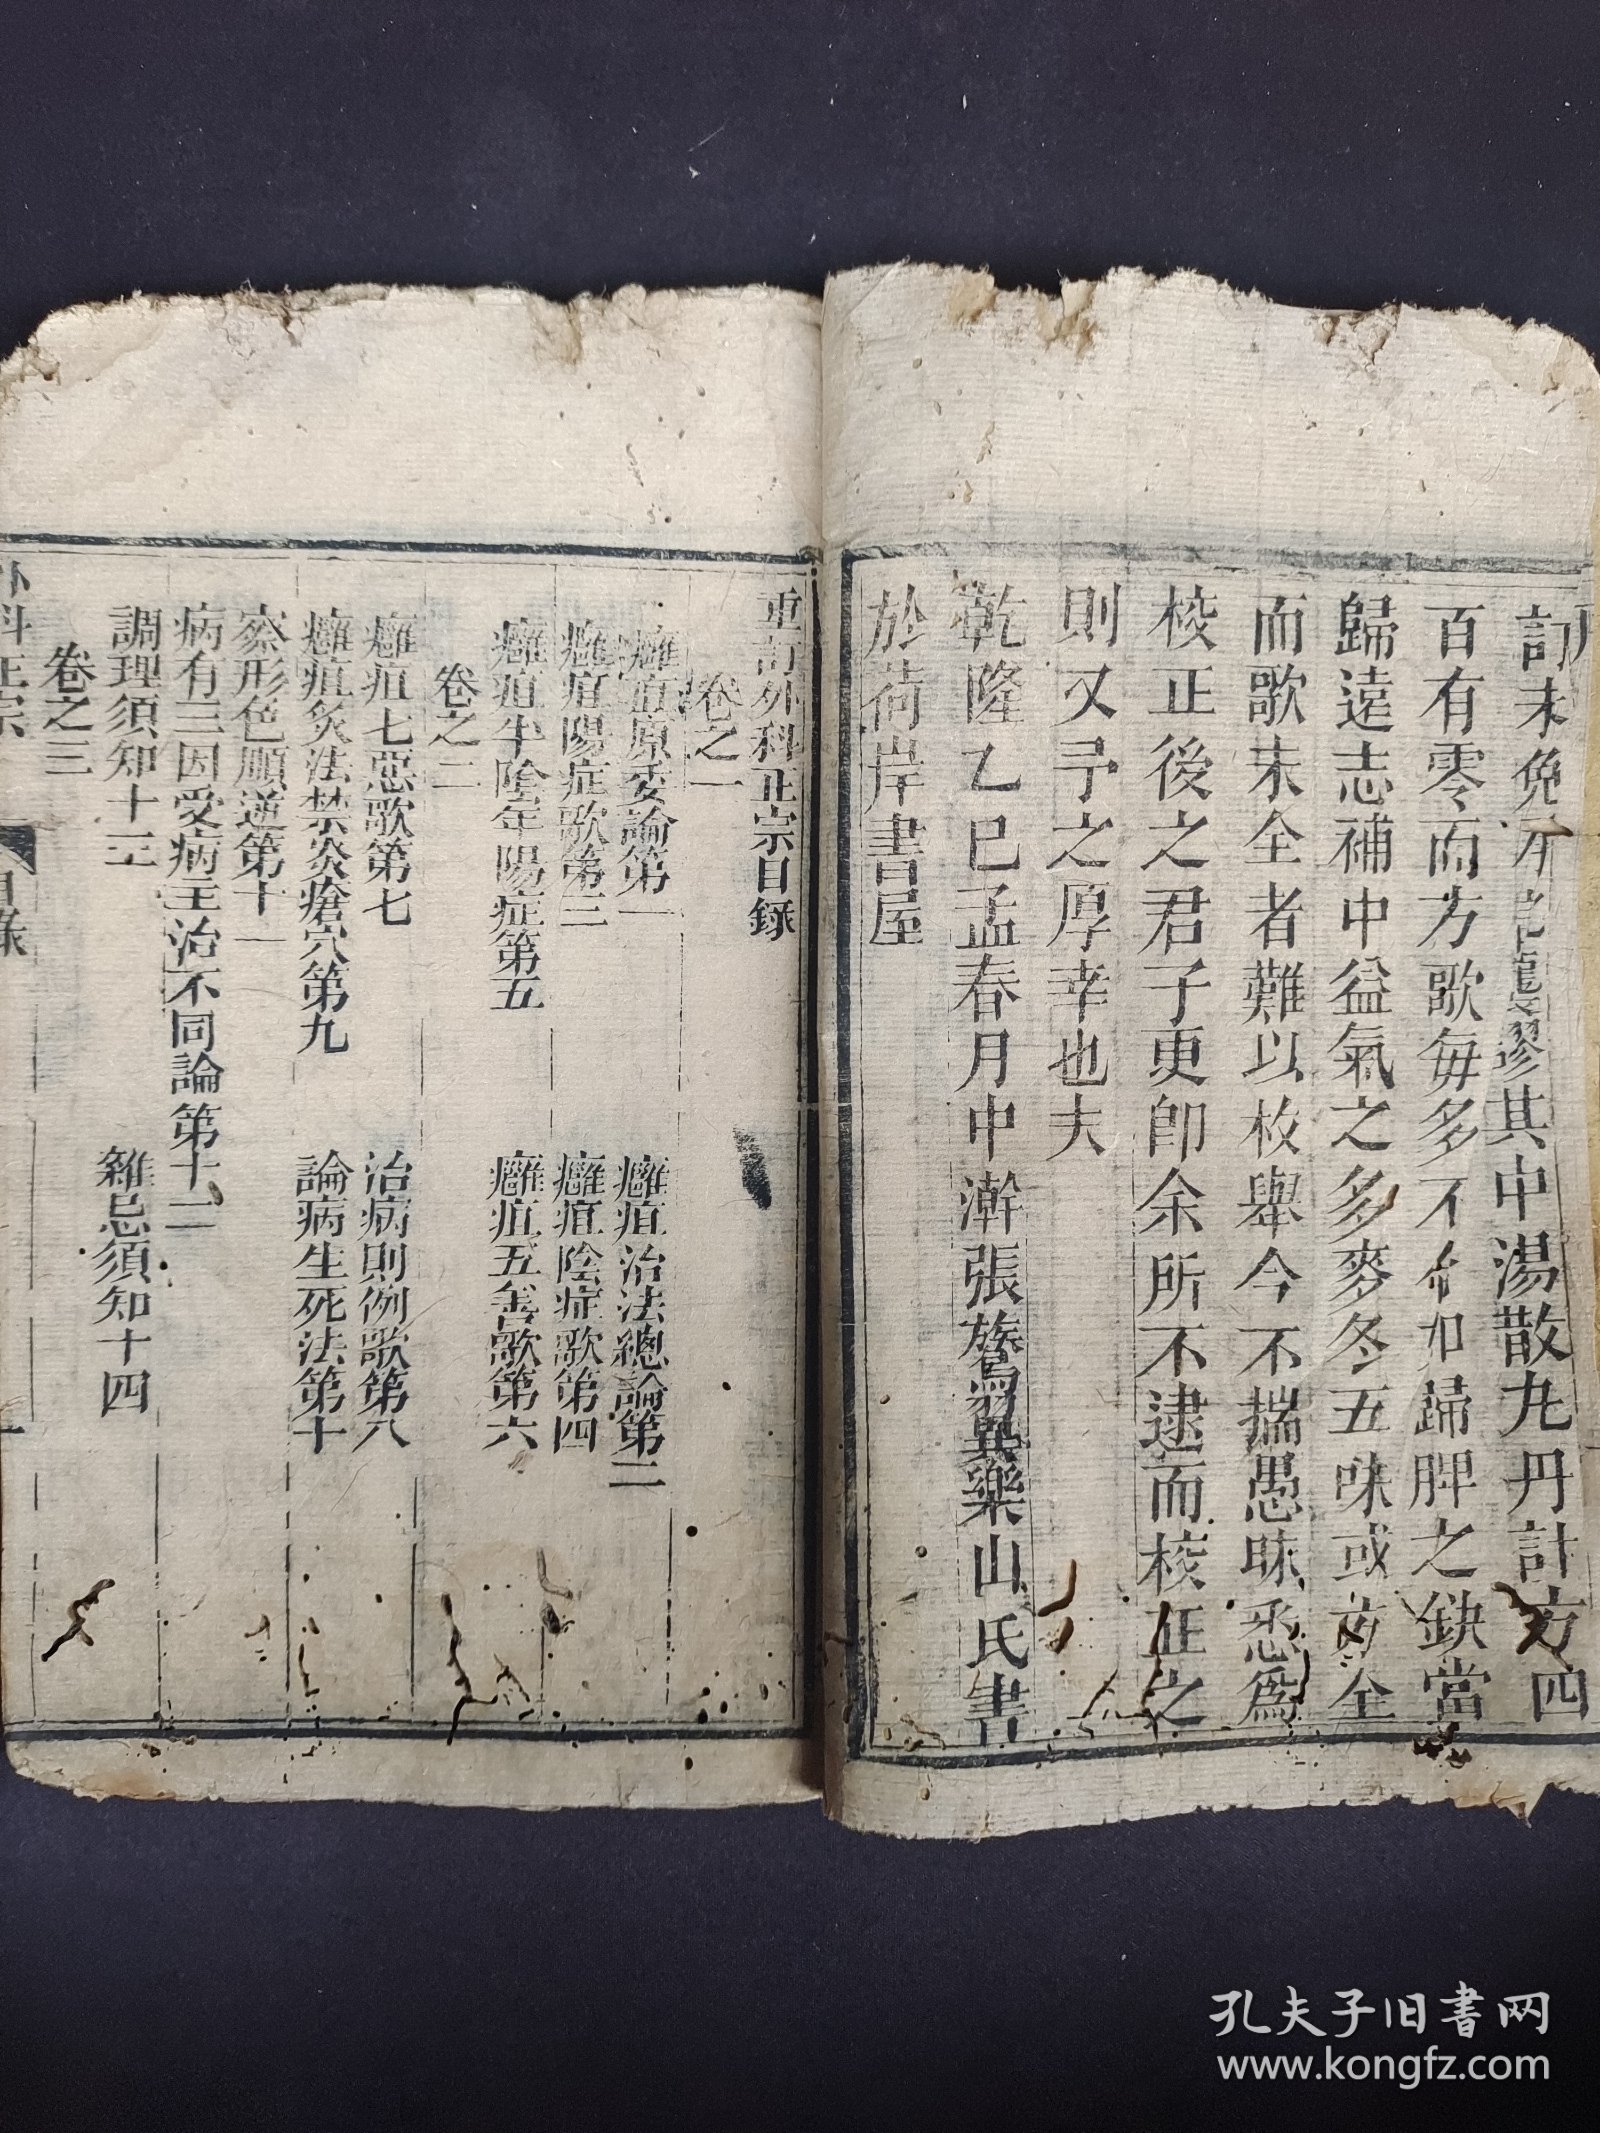 訂未免
其中湯散丸丹計方四
百有零而方歌每多不
歸脾之缺當
歸遠志補中益氣之多麥冬五味或方全
而歌未全者難以枚舉今不揣愚昧悉爲
校正後之君子更卽余所不逮而校正之
則又予之厚幸也夫
乾隆乙巳孟春月中澣張鶿翼樂山氏書
於荷岸書屋
重訂外科正宗目録
卷之一
癰疽原委論第一 癰疽治法總論第二
癰疽陽症歌第三 癰疽陰症歌第四
癰疽半陰半陽症第五 癰疽五善歌第六
卷之二
癰疽七惡歌第七 治病則例歌第八
癰疽灸法禁灸瘡穴第九 論病生死法第十
察形色順逆第十一
病有三因受病主治不同論第十二
調理須知十三 雜忌須知十四
卷之三
外科正宗 目録
孔夫子旧书网
www.kongfz.com